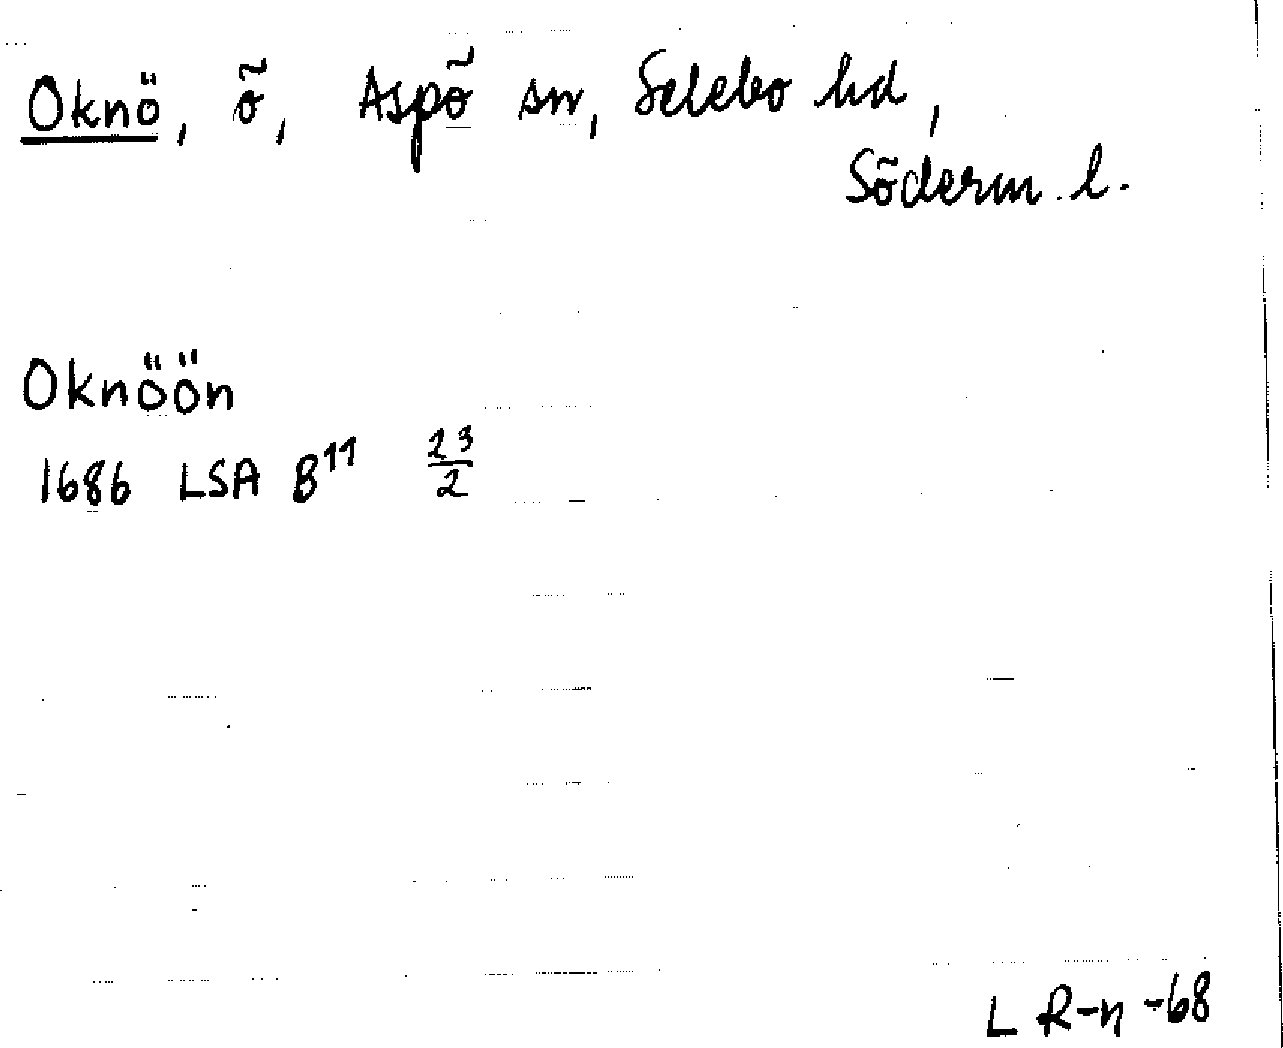 Oknö, ö, Aspö sn, Selebo hd,
Söderm. l.
Oknöön
1686 LSA B¹¹ 23/2
L R-n -68